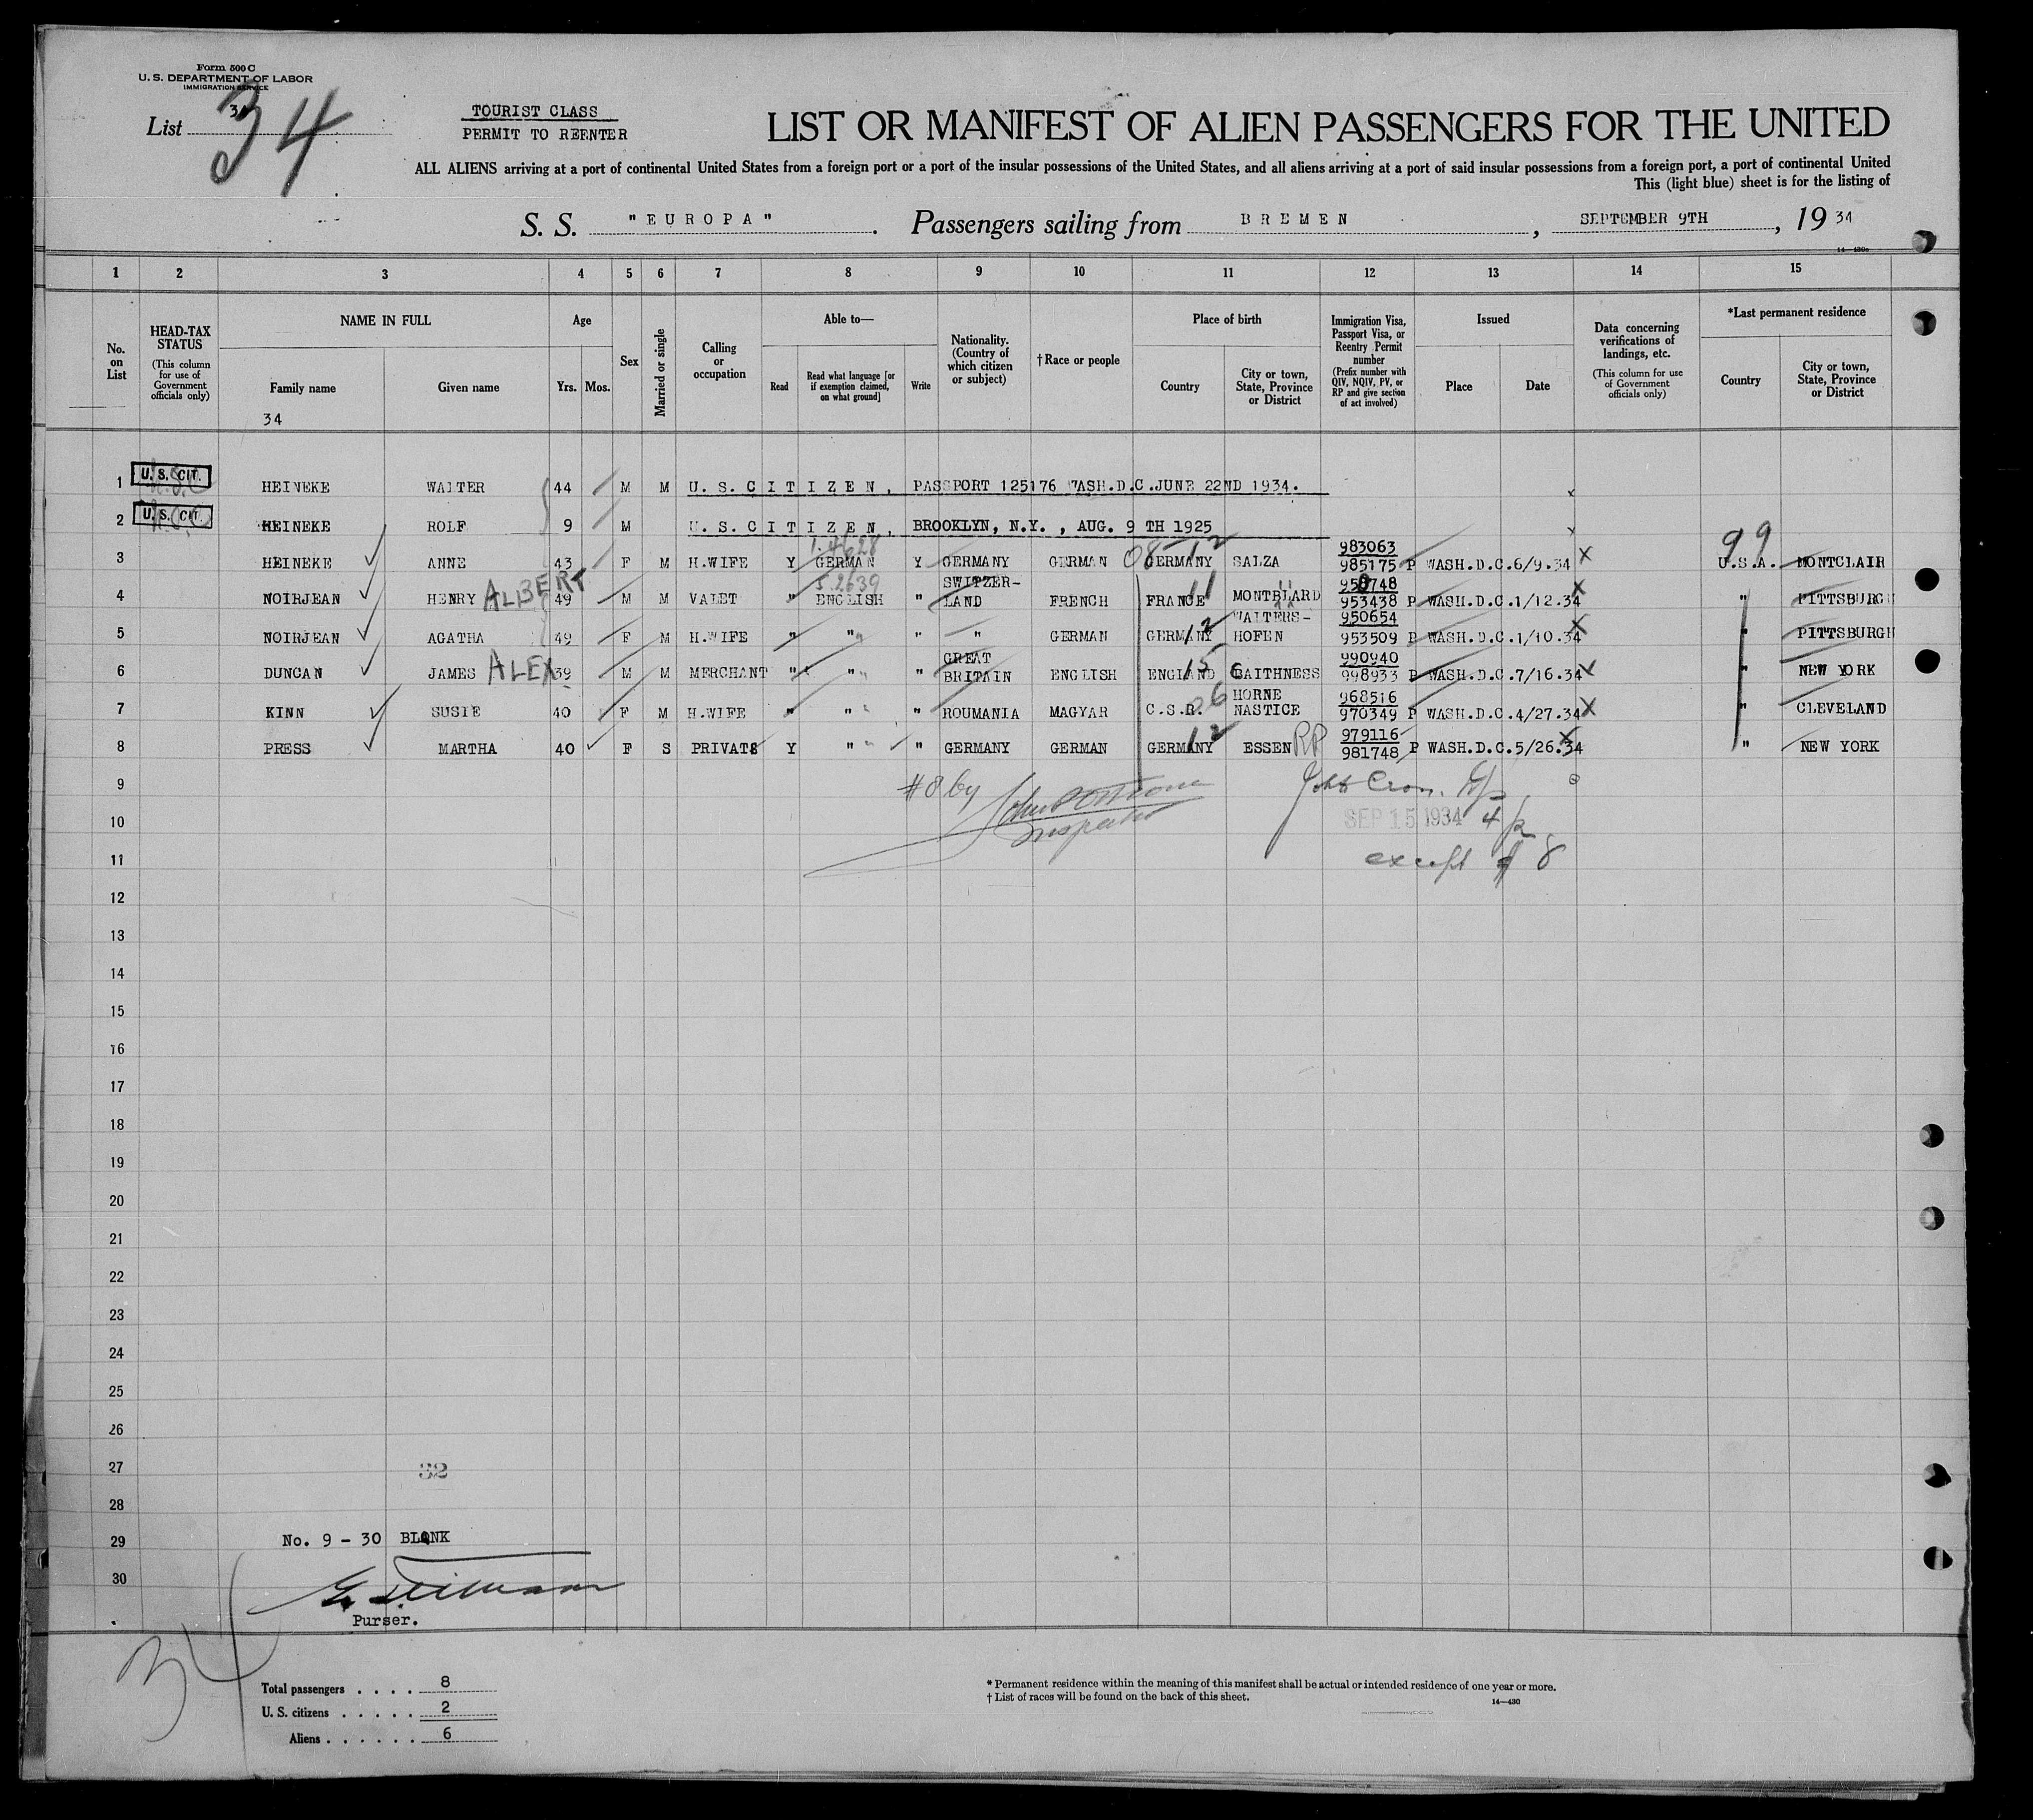 Form 500 C
U. S. DEPARTMENT OF LABOR
IMMIGRATION SERVICE
List 34
34
TOURIST CLASS
PERMIT TO REENTER
LIST OR MANIFEST OF ALIEN PASSENGERS FOR THE UNITED
ALL ALIENS arriving at a port of continental United States from a foreign port or a port of the insular possessions of the United States, and all aliens arriving at a port of said insular possessions from a foreign port, a port of continental United
This (light blue) sheet is for the listing of
S. S. "EUROPA" . Passengers sailing from BREMEN , SEPTEMBER 9TH , 19 34
14—430
1 2 3 4 5 6 7 8 9 10 11 12 13 14 15
No. on List
HEAD-TAX STATUS (This column for use of Government officials only)
NAME IN FULL
Family name
Given name
34
Age
Yrs. Mos.
Sex
Married or single
Calling or occupation
Able to—
Read
Read what language [or if exemption claimed, on what ground]
Write
Nationality. (Country of which citizen or subject)
†Race or people
Place of birth
Country
City or town, State, Province or District
Immigration Visa, Passport Visa, or Reentry Permit number (Prefix number with QIV, NQIV, PV, or RP and give section of act involved)
Issued
Place
Date
Data concerning verifications of landings, etc. (This column for use of Government officials only)
*Last permanent residence
Country
City or town, State, Province or District
1 U. S. CIT. HEINEKE WALTER 44 M M U. S. CITIZEN, PASSPORT 125176 WASH.D.C.JUNE 22ND 1934.
2 U. S. CIT. HEINEKE ROLF 9 M U. S. CITIZEN, BROOKLYN, N.Y. , AUG. 9 TH 1925
3 HEINEKE ANNE 43 F M H.WIFE Y GERMAN Y GERMANY GERMAN 08 GERMANY 12 SALZA 983063 985175 P WASH.D.C.6/9.34 99 U.S.A. MONTCLAIR
4 NOIRJEAN HENRY ALBERT 49 M M VALET " 5.2639 ENGLISH " SWITZER-LAND FRENCH FRANCE 11 MONTBLIARD 950748 953438 P WASH.D.C.1/12.34 " PITTSBURGH
5 NOIRJEAN AGATHA 49 F M H.WIFE " " " " GERMAN GERMANY 12 WALTERS-HOFEN 950654 953509 P WASH.D.C.1/10.34 " PITTSBURGH
6 DUNCAN JAMES ALEX 39 M M MERCHANT " " " GREAT BRITAIN ENGLISH ENGLAND 15 CAITHNESS 990940 998933 P WASH.D.C.7/16.34 " NEW YORK
7 KINN SUSIE 40 F M H.WIFE " " " ROUMANIA MAGYAR C.S.R. 26 HORNE NASTICE 968516 970349 P WASH.D.C.4/27.34 " CLEVELAND
8 PRESS MARTHA 40 F S PRIVATE Y " " GERMANY GERMAN GERMANY 12 ESSEN RP 979116 981748 P WASH.D.C.5/26.34 " NEW YORK
9 #8 by
10 Inspector SEP 15 1934
11 except # 8
12
13
14
15
16
17
18
19
20
21
22
23
24
25
26
27 32
28
29 No. 9 - 30 BLANK
30
Purser.
34
Total passengers . . . . 8
U. S. citizens . . . . . 2
Aliens . . . . . . 6
* Permanent residence within the meaning of this manifest shall be actual or intended residence of one year or more.
† List of races will be found on the back of this sheet.
14—430